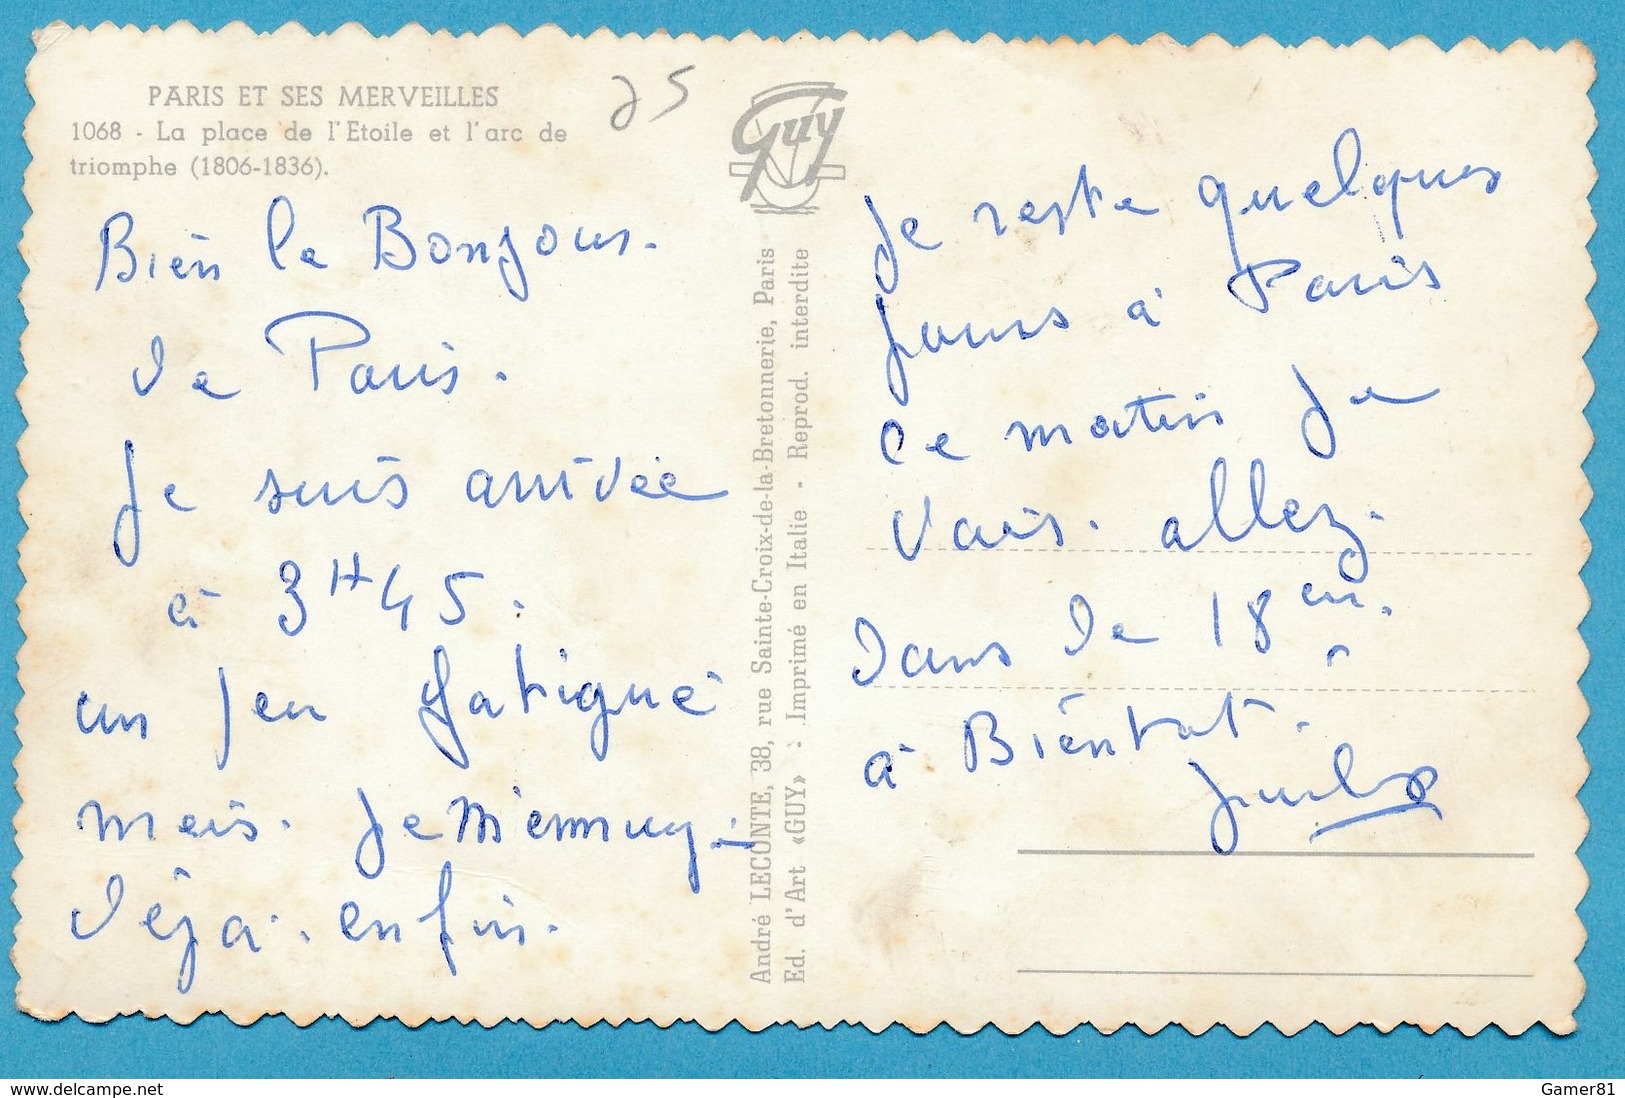 PARIS ET SES MERVEILLES
1068 - La place de l'Etoile et l'arc de
triomphe (1806-1836).
75
Guy
Bien le Bonjour.
de Paris.
Je suis arrivée
à 3H45.
un peu fatigué
mais. Je m'ennuy
déja. enfin.
André LECONTE, 38, rue Sainte-Croix-de-la-Bretonnerie, Paris
Ed. d'Art «GUY» : Imprimé en Italie - Reprod. interdite
Je reste quelques
jours à Paris
ce matin Je
vais. allez.
dans le 18 em.
à Bientot.
www.delcampe.net
Gamer81